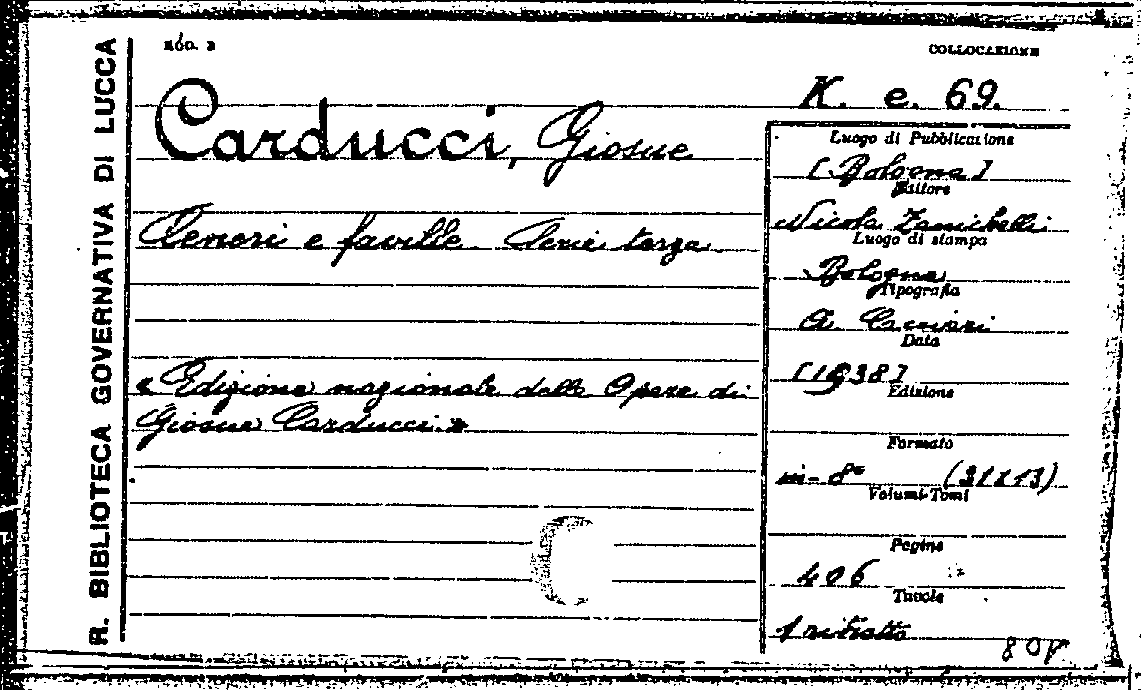 R. BIBLIOTECA GOVERNATIVA DI LUCCA
MOD. 2
COLLOCAZIONE
K. e. 69.
Carducci, Giosue
Ceneri e faville Serie terza
« Edizione nazionale delle Opere di
Giosue Carducci. »
Luogo di Pubblicazione
[Bologna]
Editore
Nicola Zanichelli
Luogo di stampa
Bologna
Tipografia
A. Cacciari
Data
[1938]
Edizione
Formato
in-8° (31x13)
Volumi-Tomi
Pagine
406
Tavole
1 ritratto